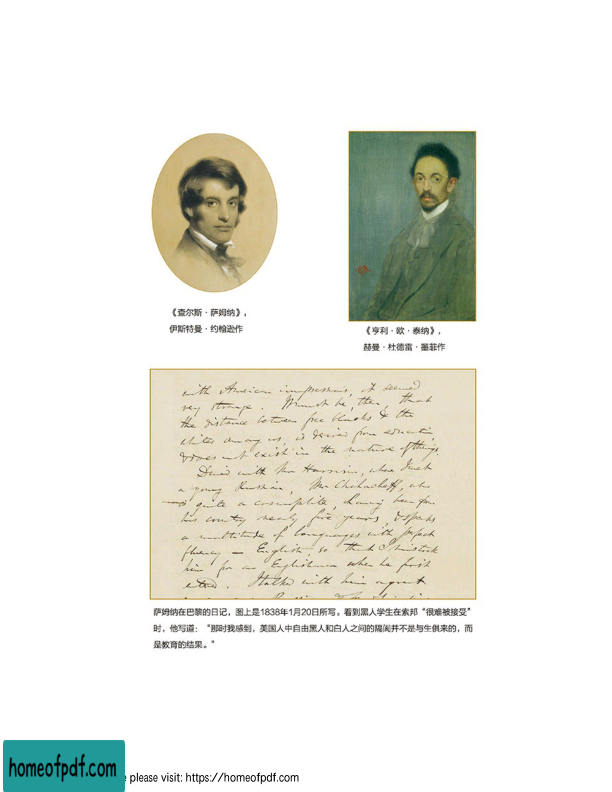 《查尔斯·萨姆纳》，
伊斯特曼·约翰逊作
《亨利·欧·泰纳》，
赫曼·杜德雷·墨菲作
with American impressions, it seemed
very strange. It must be, then, that
the distance between free blacks & the
whites among us, is derived from education,
& does not exist in the nature of things.
Dined with Mr Harrison, where I met
a young Russian, Mr Chihacheff, who
is quite a cosmopolite, having been from
his country nearly five years, & speaks
a multitude of languages with perfect
fluency — English, so that I mistook
him for an Englishman when he first
entered. I talked with him a great
萨姆纳在巴黎的日记，图上是1838年1月20日所写。看到黑人学生在索邦“很难被接受”
时，他写道：“那时我感到，美国人中自由黑人和白人之间的隔阂并不是与生俱来的，而
是教育的结果。”
homeofpdf.com
e please visit: https://homeofpdf.com